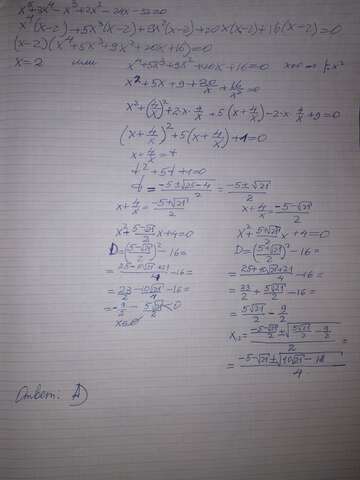 x⁵+3x⁴-x³+2x²-24x-32=0
x⁴(x-2)+5x³(x-2)+9x²(x-2)+20x(x-2)+16(x-2)=0
(x-2)(x⁴+5x³+9x²+20x+16)=0
x=2 или x⁴+5x³+9x²+20x+16=0 x≠0 => |:x²
x²+5x+9+20/x+16/x²=0
x²+(4/x)²+2x·4/x+5(x+4/x)-2x·4/x+9=0
(x+4/x)²+5(x+4/x)+1=0
x+4/x=t
t²+5t+1=0
t=(-5±√(25-4))/2=(-5±√21)/2
x+4/x=(-5+√21)/2 x+4/x=(-5-√21)/2
x²+(5-√21)/2 x+4=0 x²+(5+√21)/2 x+4=0
D=((5-√21)/2)²-16= D=((5+√21)/2)²-16=
=(25-10√21+21)/4-16= =(25+10√21+21)/4-16=
=23/2-10√21/4-16= =23/2+5√21/2-16=
=-9/2-5√21/2<0 =5√21/2-9/2
x∈∅ x₁,₂=((-5-√21)/2±√(5√21/2-9/2))/2
=(-5-√21±√(10√21-18))/4
Ответ: А)